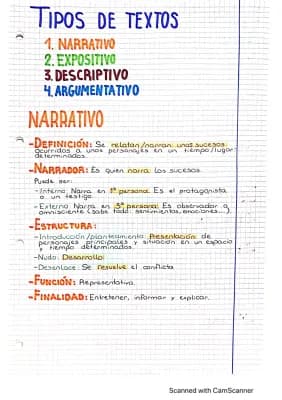 TIPOS DE TEXTOS
1. NARRATIVO
2. EXPOSITIVO
3. DESCRIPTIVO
4. ARGUMENTATIVO
NARRATIVO
-DEFINICIÓN: Se relatan/narran unos sucesos
ocurridos a unos personajes en un tiempo/lugar
determinados.
-NARRADOR: Es quien narra los sucesos.
Puede ser:
-Interno: Narra en 1ª persona. Es el protagonista
o un testigo.
-Externo: Narra en 3ª persona. Es observador o
omnisciente (sabe todo: sentimientos, emociones...)
-ESTRUCTURA:
-Introducción/planteamiento: Presentación de
personajes principales y situación en un espacio
y tiempo determinados.
-Nudo: Desarrollo
-Desenlace: Se resuelve el conflicto
-FUNCIÓN: Representativa.
-FINALIDAD: Entretener, informar y explicar.
Scanned with CamScanner